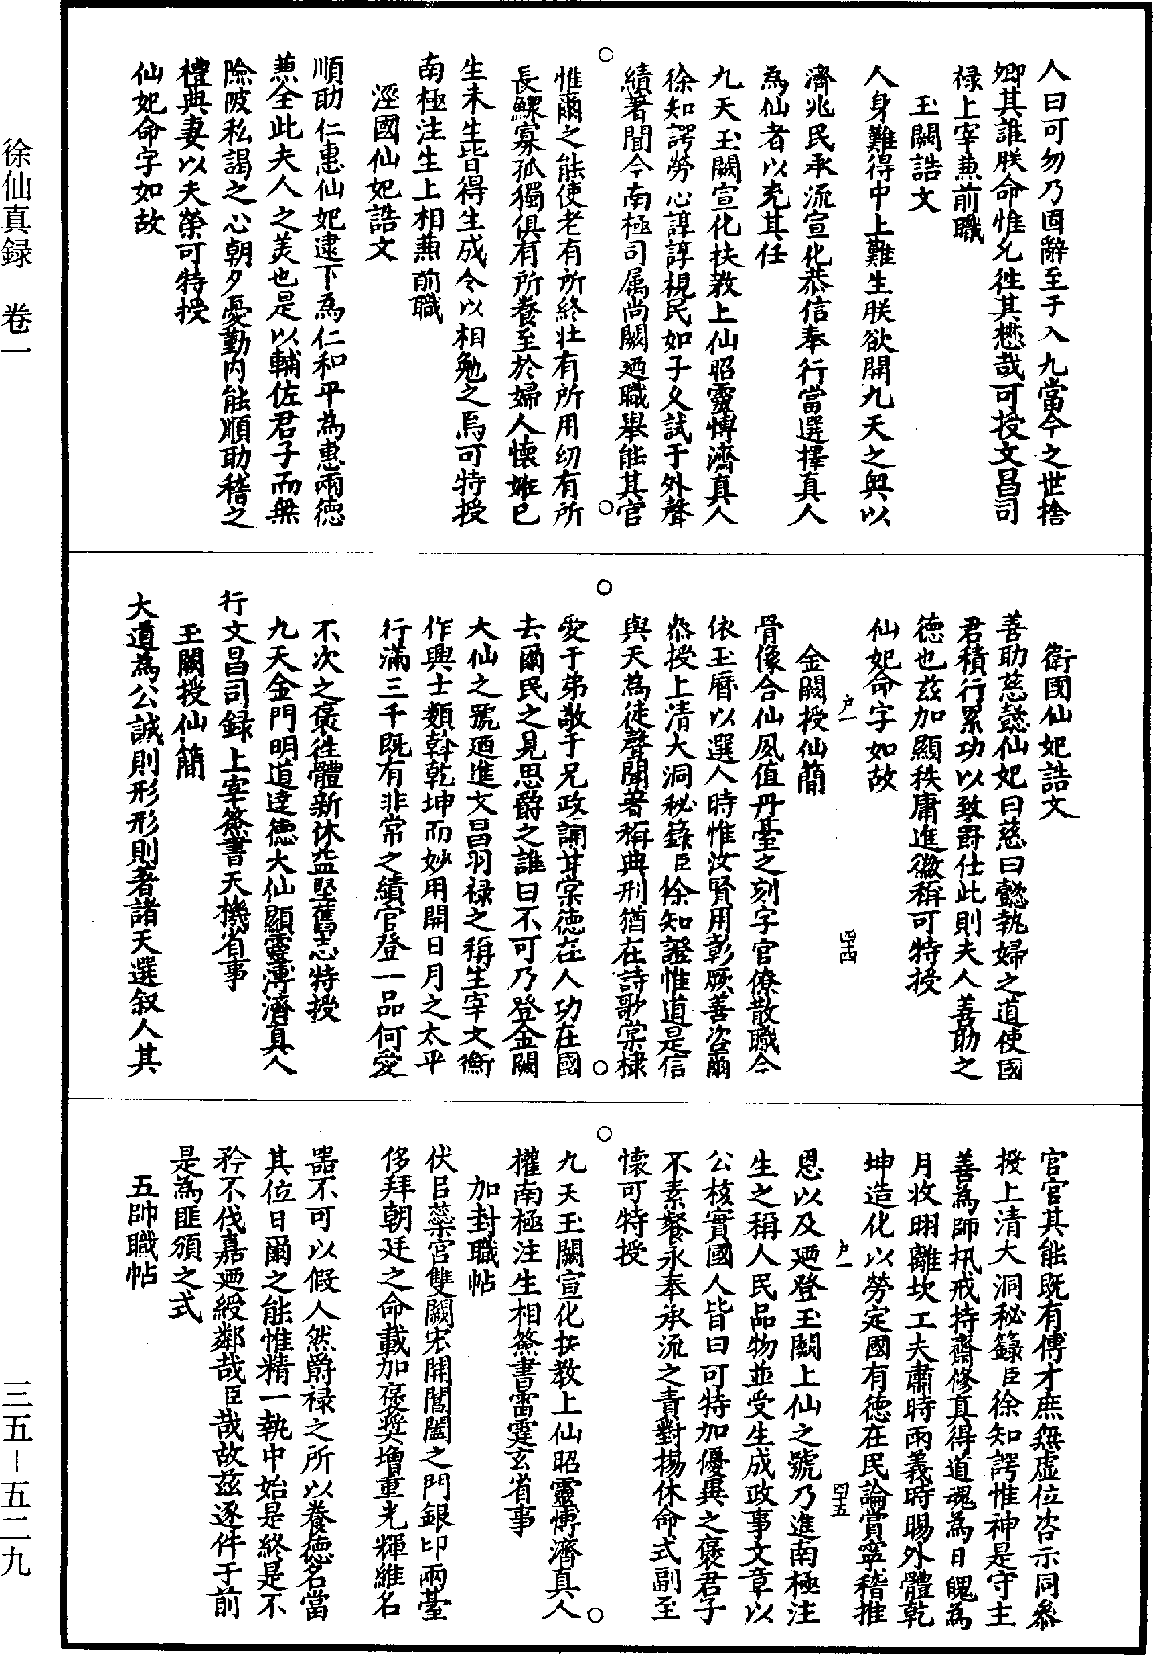 人曰可勿乃固辭至于入九當今之世捨
卿其誰朕命惟允徃其懋哉可授文昌司
禄上宰兼前職
玉闕誥文
人身難得中上難生朕欲開九天之輿以
濟兆民承流宣化恭信奉行當選擇真人
為仙者以充其任
九天玉闕宣化扶教上仙昭靈愽濟真人
徐知諤勞心諄諄視民如子文試于外聲
績著聞今南極司属尚闕廼職舉能其官
惟爾之能使老有所終壯有所用幼有所
長鰥寡孤獨俱有所養至於婦人懷姙已
生未生皆得生成令以相勉之焉可特授
南極注生上相兼前職
涇國仙妃誥文
順助仁惠仙妃逮下為仁和平為惠兩徳
兼全此夫人之美也是以輔佐君子而無
險陂私謁之心朝夕憂勤内能順助稽之
禮典妻以夫榮可特授
仙妃命字如故
衛國仙妃誥文
善助慈懿仙妃曰慈曰懿執婦之道使國
君積行累功以致爵仕此則夫人善助之
徳也兹加顯秩庸進徽稱可特授
仙妃命字如故
金闕授仙簡
骨像合仙夙值丹臺之刻字官僚散職合
依玉曆以選人時惟汝賢用彰厥善咨爾
叅授上清大洞秘籙臣徐知證惟道是信
與天為徒聲聞著稱典刑猶在詩歌棠棣
愛于弟敬于兄政誦甘棠徳在人功在國
去爾民之見思爵之誰曰不可乃登金闕
大仙之號廼進文昌羽禄之稱生宰文衡
作興士類斡乾坤而妙用開日月之太平
行滿三千既有非常之績官登一品何愛
不次之褒徃體新休益堅舊志特授
九天金門明道達德大仙顯靈溥濟真人
行文昌司録上宰簽書天機省事
玉闕授仙簡
大道為公誠則形形則著諸天選叙人其
官官其能既有傅才庶無虛位咨示同叅
授上清大洞秘籙臣徐知諤惟神是守主
善為師扎戒持齋修真得道魂為日魄為
月收明離坎工夫肅時雨義時暘外體乾
坤造化以勞定國有徳在民論賞寧稽推
恩以及廼登玉闕上仙之號乃進南極注
生之稱人民品物並受生成政事文章以
公核實國人皆曰可特加優異之褒君子
不素餐永奉承流之責對揚休命式副至
懷可特授
九天玉闕宣化扶教上仙昭靈愽濟真人
權南極注生相簽書雷霆玄省事
加封職帖
伏㠯蘂宮雙闕宏開閶闔之門銀印兩臺
侈拜朝廷之命載加褒奬增重光輝維名
器不可以假人然爵禄之所以養徳名當
其位日爾之能惟精一執中始是終是不
矜不伐嘉廼綬鄰哉臣哉故兹逐件于前
是為匪頒之式
五帥職帖
户一
四十四
户一
四十五
徐仙真録　卷一
三五－五二九